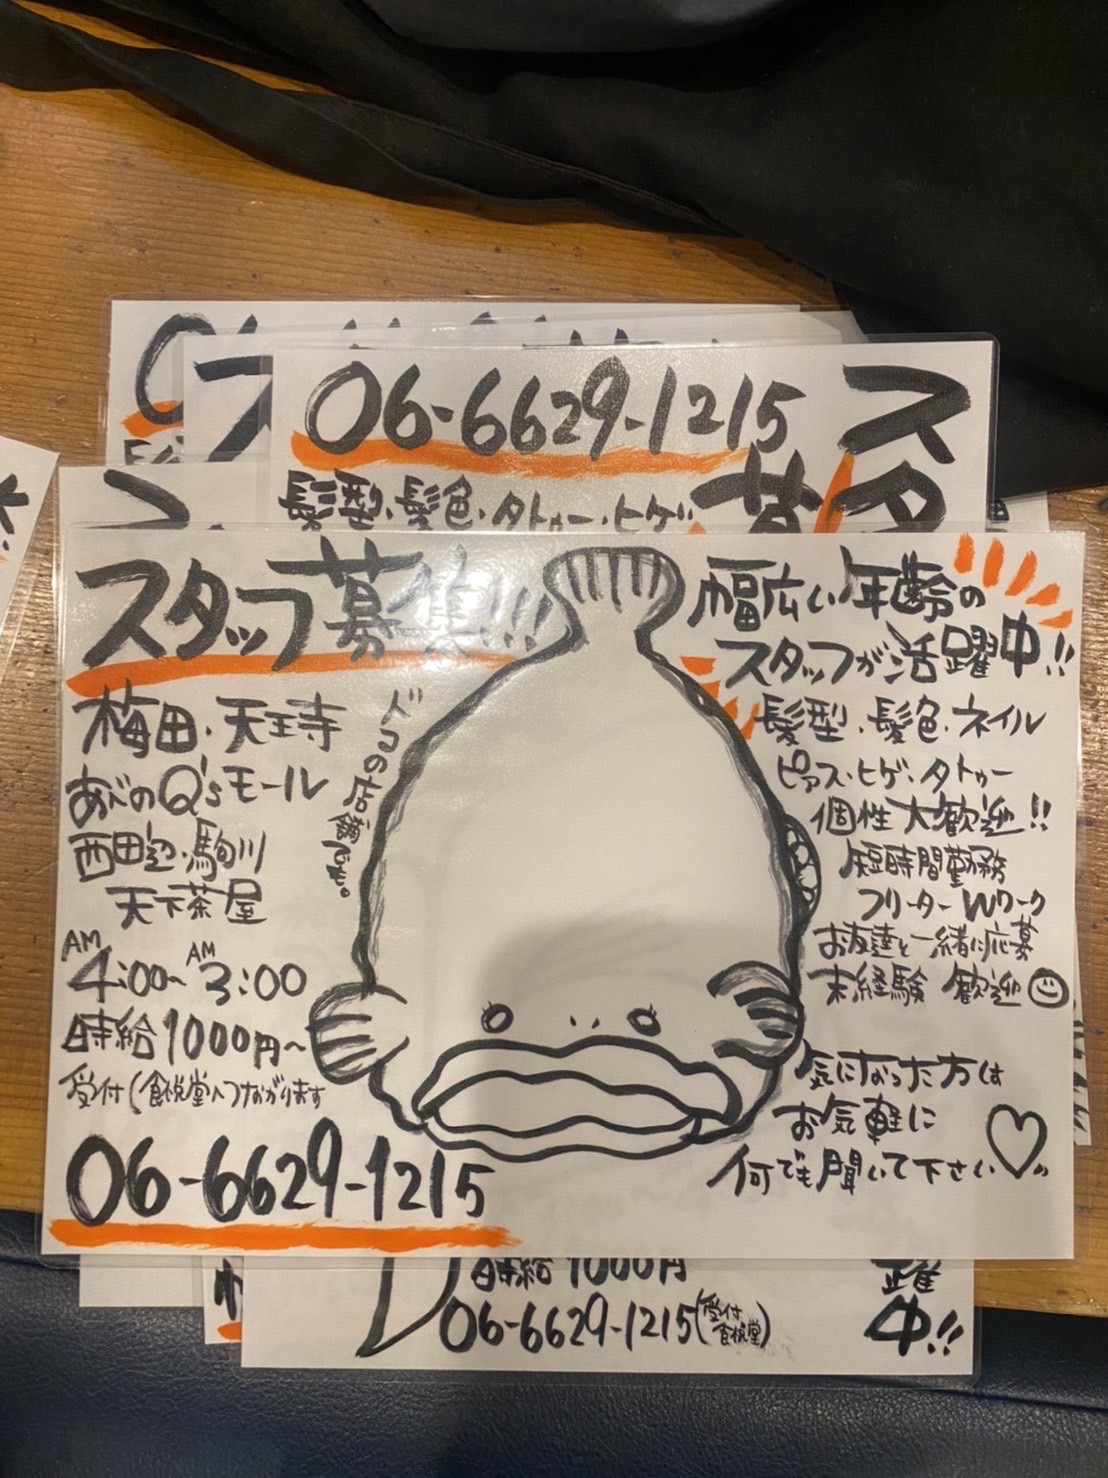 06-6629-1215
髪型・髪色・タトゥー・ヒゲ
スタ
募
スタッフ募集!!!
梅田・天王寺
あべのQ'sモール
西田辺・駒川
天下茶屋
ドコの店舗でも。
AM4:00~AM3:00
時給1000円~
受付(食悦堂へつながります
06-6629-1215
幅広い年齢の
スタッフが活躍中!!
髪型・髪色・ネイル
ピアス・ヒゲ・タトゥー
個性大歓迎!!
短時間勤務
フリーターWワーク
お友達と一緒に応募
未経験 歓迎
気になった方は
お気軽に
何でも聞いて下さい
時給1000円
06-6629-1215(受付 食悦堂)
躍
中!!